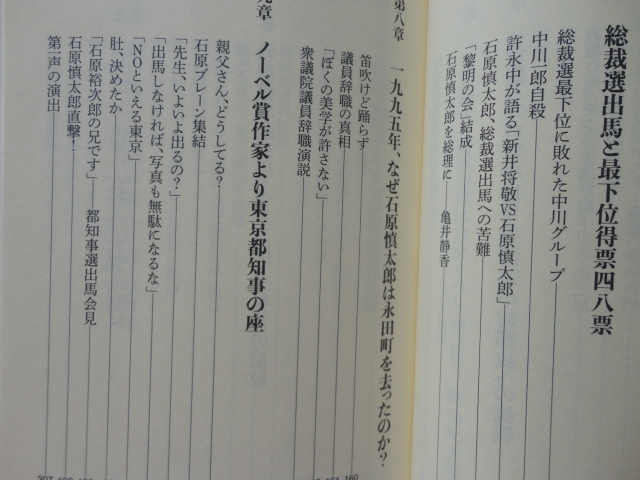 総裁選出馬と最下位得票四八票
総裁選最下位に敗れた中川グループ
中川一郎自殺
許永中が語る「新井将敬VS石原慎太郎」
石原慎太郎、総裁選出馬への苦難
「黎明の会」結成
石原慎太郎を総理に――亀井静香
第八章 一九九五年、なぜ石原慎太郎は永田町を去ったのか?
笛吹けど踊らず
議員辞職の真相
「ぼくの美学が許さない」
衆議院議員辞職演説
九章 ノーベル賞作家より東京都知事の座
親父さん、どうしてる?
石原ブレーン集結
「先生、いよいよ出るの?」
「出馬しなければ、写真も無駄になるな」
「NOといえる東京」
肚、決めたか
「石原裕次郎の兄です」 都知事選出馬会見
石原慎太郎直撃!
第一声の演出